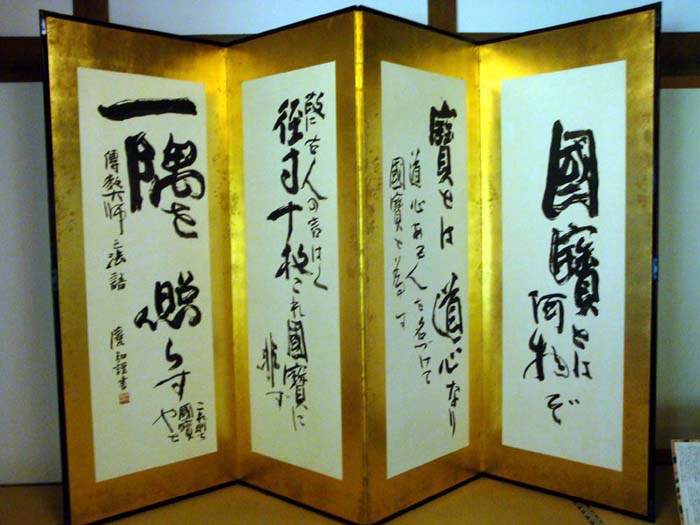 國寶とは
何物ぞ
寶とは道心なり
道心ある人を名づけて
國寶と為す
故に古人の言はく
径寸十枚これ國寶に
非ず
一隅を照らす
これ則ち
國寶
傳教大師之法語
謹書